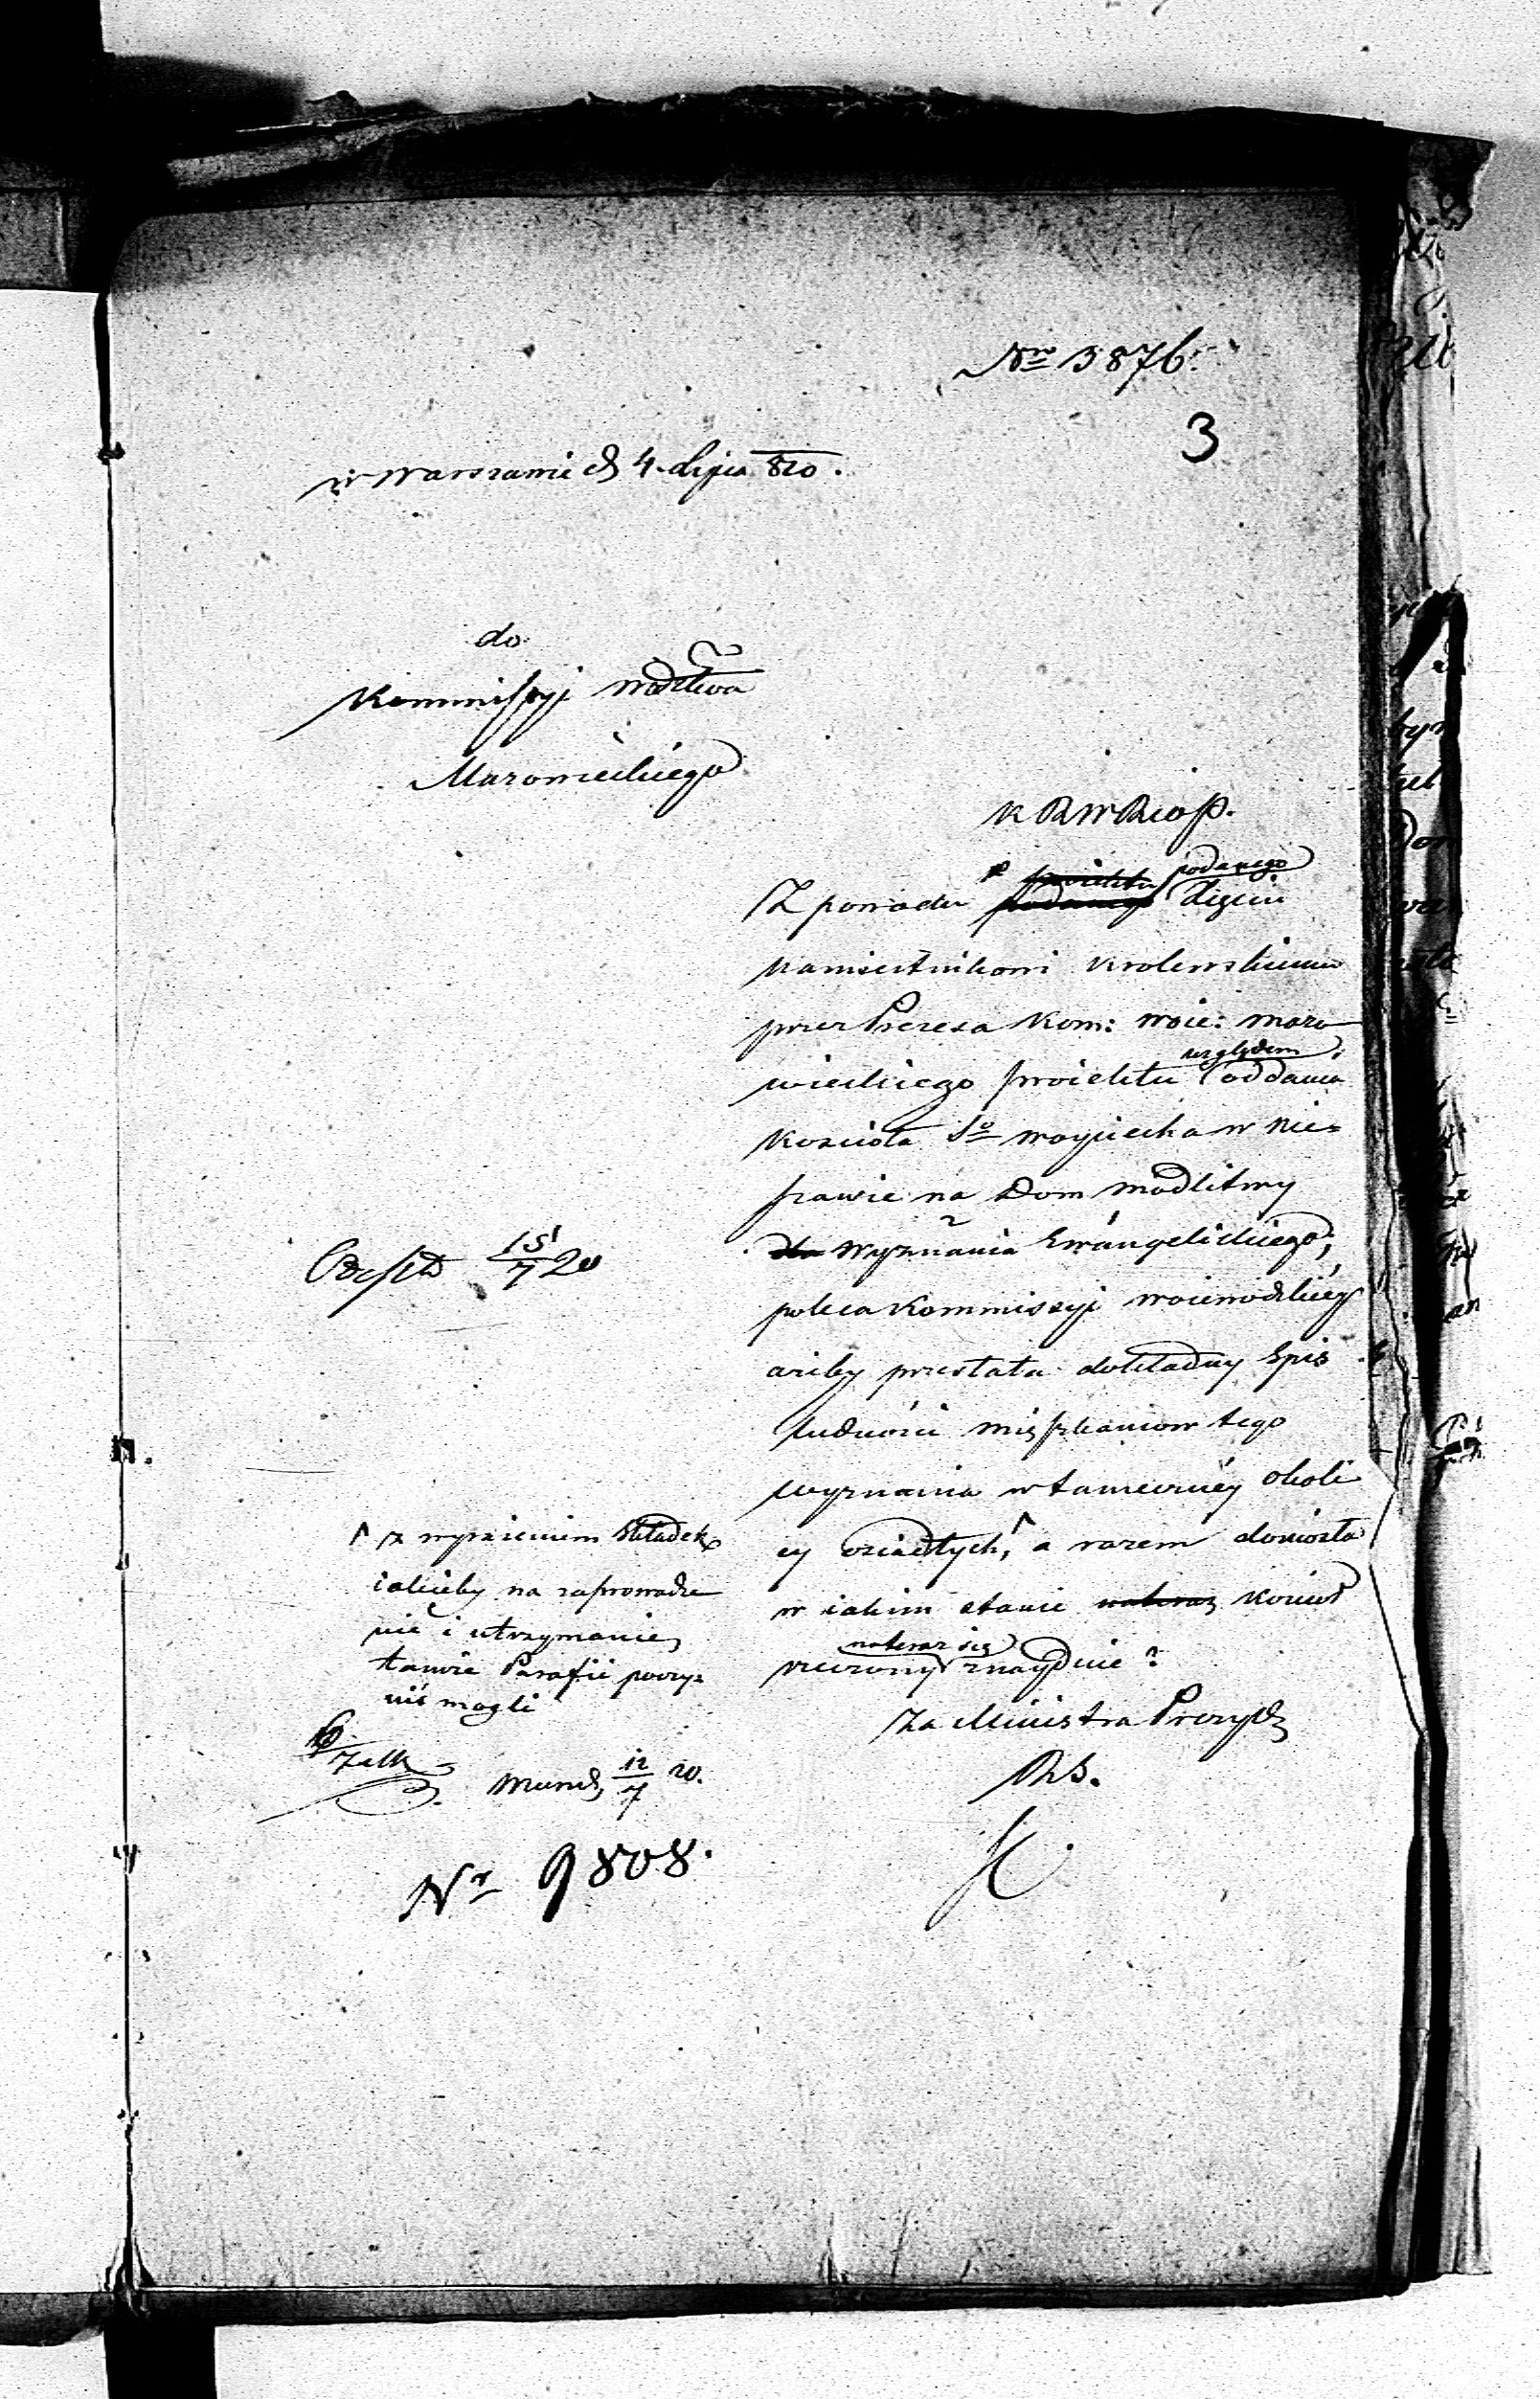 Nro 3876.
3
w Warszawie d 4. Lipca 820.
do
Kommissyi Wodztwa
Mazowieckiego
K R W R i O P.
Z powodu podanego Xięciu
Namiestnikowi Krolewskiemu
przez Prezesa Kom: Woie: Mazo
wieckiego proiektu względem oddania
Kościoła So Woyciecha w Nie=
szawie na Dom modlitwy
dla wyznania Ewangelickiego,
poleca Kommissyi Woiewodzkiéy
ażeby przesłała dokładny Spis
ludności mięszkancow tego
wyznania w tameczney okoli
cy osiadłych, a razem doniosła
w iakim stanie Kościoł
rzeczony nateraz się znayduie?
Za Ministra Prezyd
^ z wyrażeniem Składek
iakieby na zaprowadze
nie i utrzymanie
takowe Parafii poczy=
nić mogli
Odesłt 15/7 20
Mund, 12/7 20.
Nr 9808.